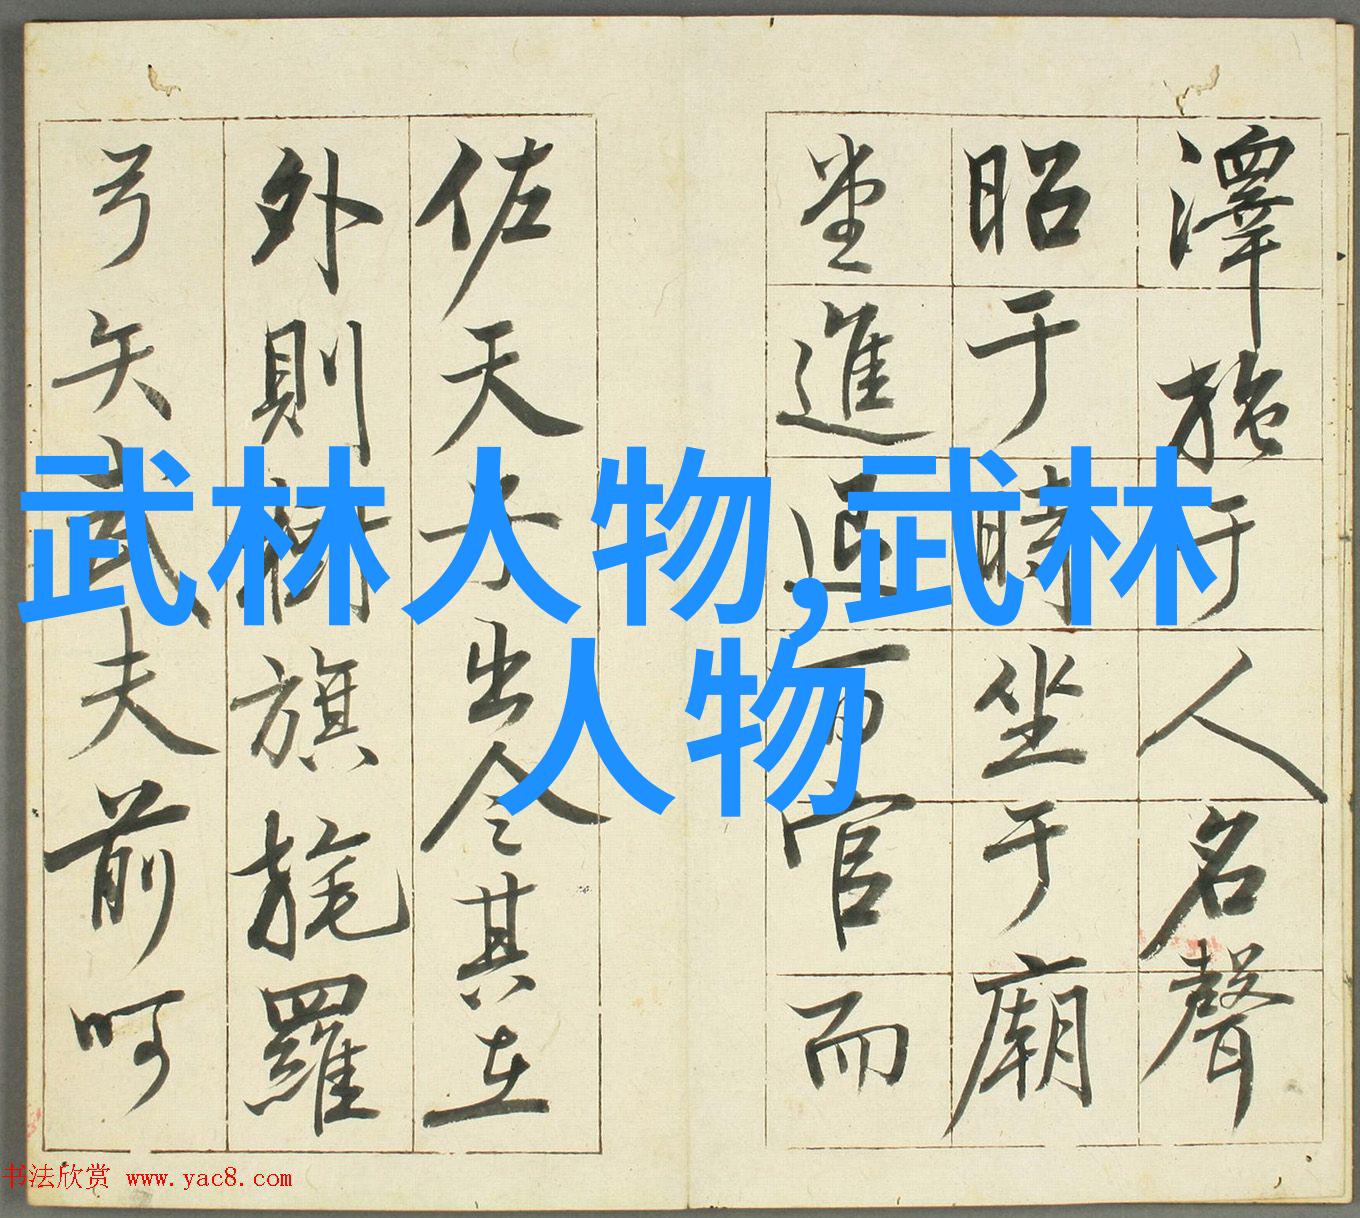 澤施于人名聲
昭于時坐于廟
堂進退百官而
佐天子出令其在
外則樹旗旄羅
弓矢武夫前呵
武林人物,武林
人物
书法欣赏 www.yac8.com